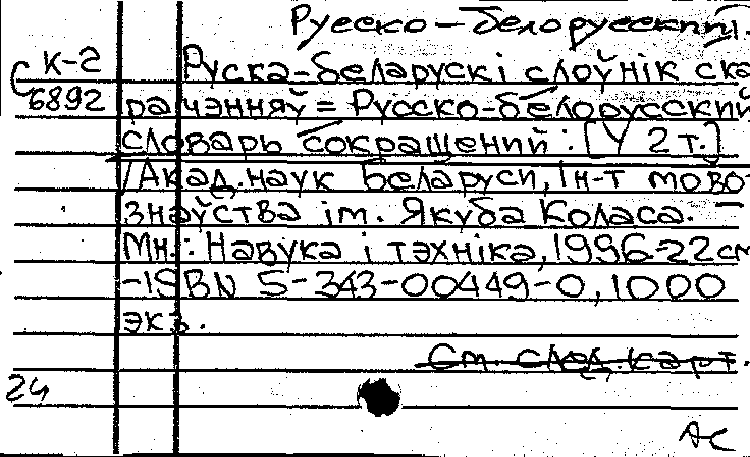 Русско-белорусский.
К-2 Руска-беларускі слоўнік ска
С 6892 рачэнняў = Русско-белорусский
словарь сокращений : [У 2 т.]
/Акад. наук Беларуси, Ін-т мово-
знаўства ім. Якуба Коласа. –
Мн.: Навука і тэхніка, 1996-22см
-ISBN 5-343-00449-0, 1000
экз.
См. след. карт.
24
АС